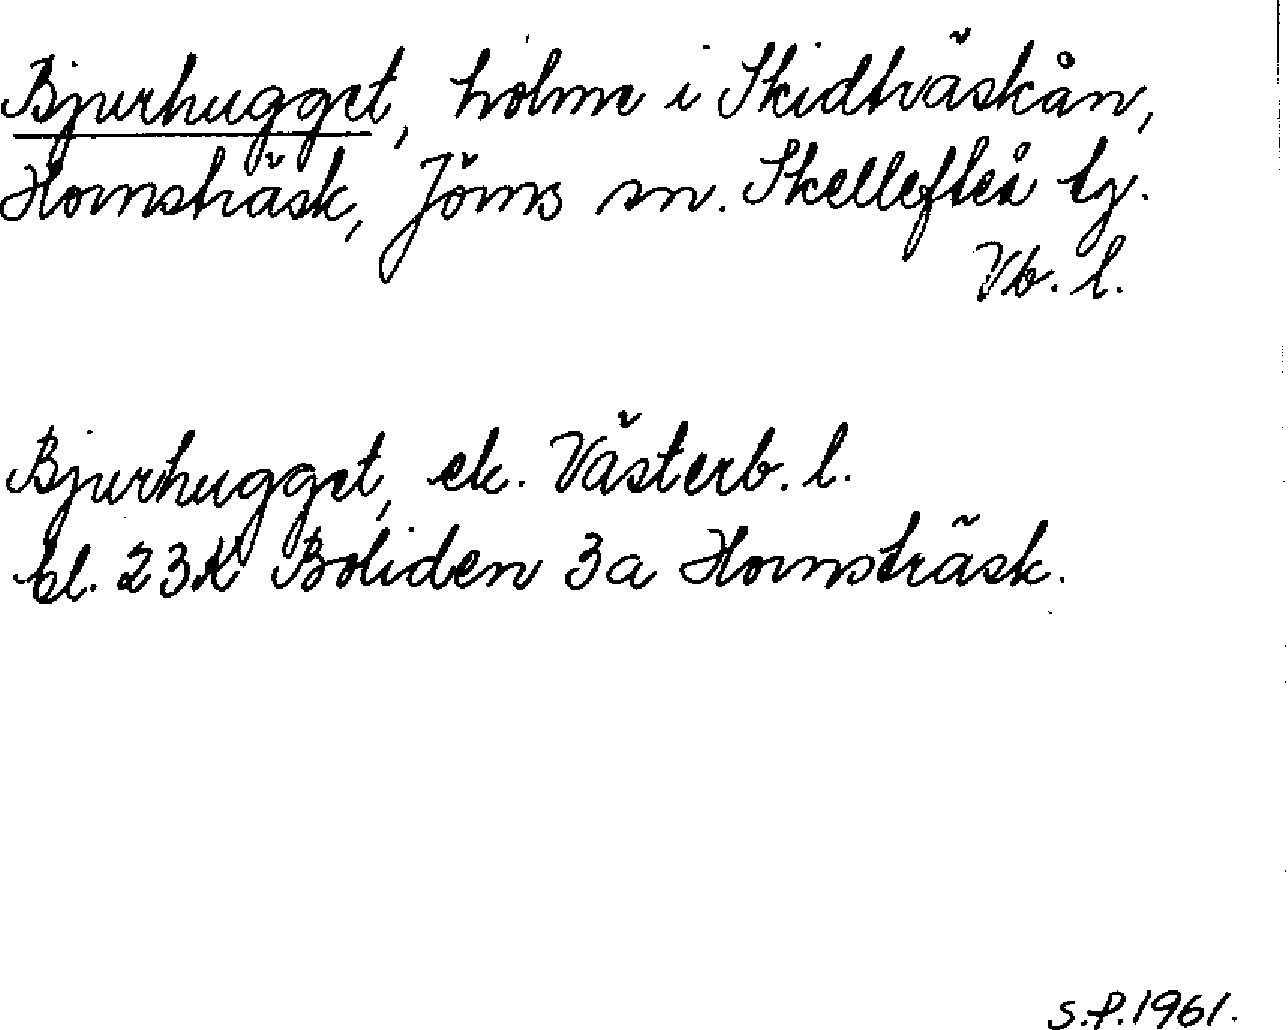 Bjurhugget, holme i Skidträskån,
Hornsträsk, Jörns sn. Skellefteå tg.
Vb. l.
Bjurhugget, ek. Västerb. l.
bl. 23K Boliden 3a Hornsträsk.
S.P. 1961.